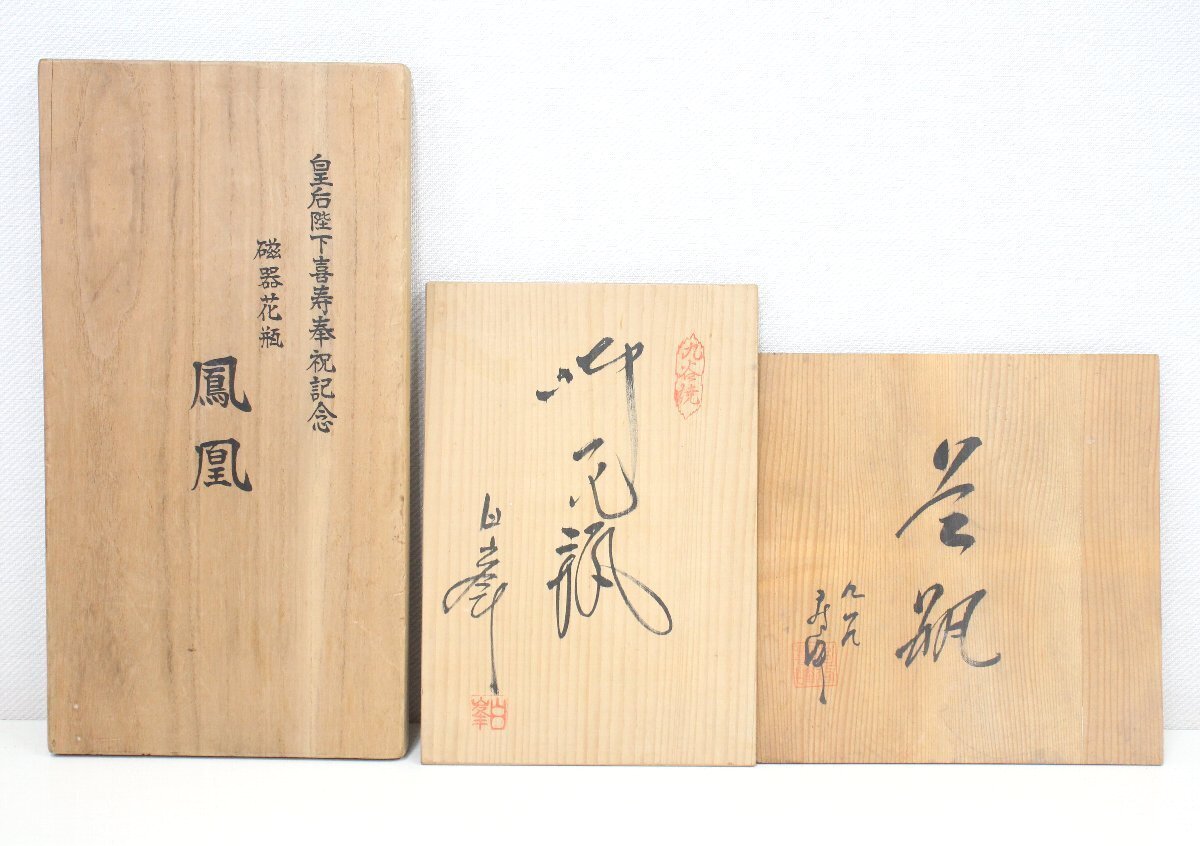 皇后陛下喜寿奉祝記念
磁器花瓶
鳳凰
九谷焼
花瓶
白峯
白峯
花瓶
九谷